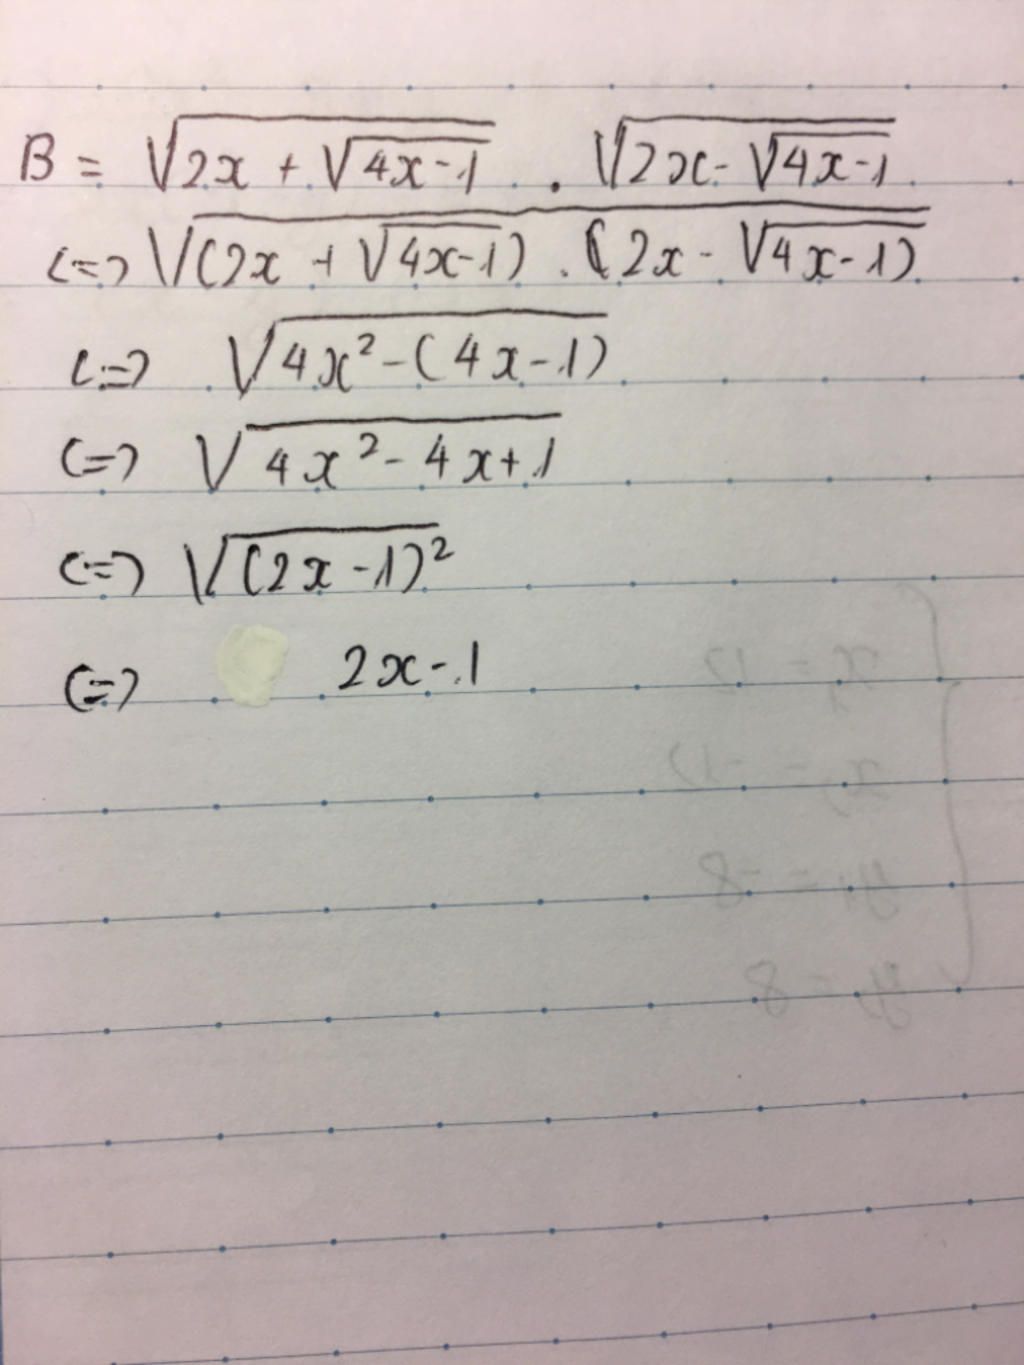 B = √(2x + √(4x-1)) . √(2x - √(4x-1))
<=> √((2x + √(4x-1)) . (2x - √(4x-1)))
<=> √(4x² - (4x - 1))
<=> √(4x² - 4x + 1)
<=> √((2x - 1)²)
<=> 2x - 1